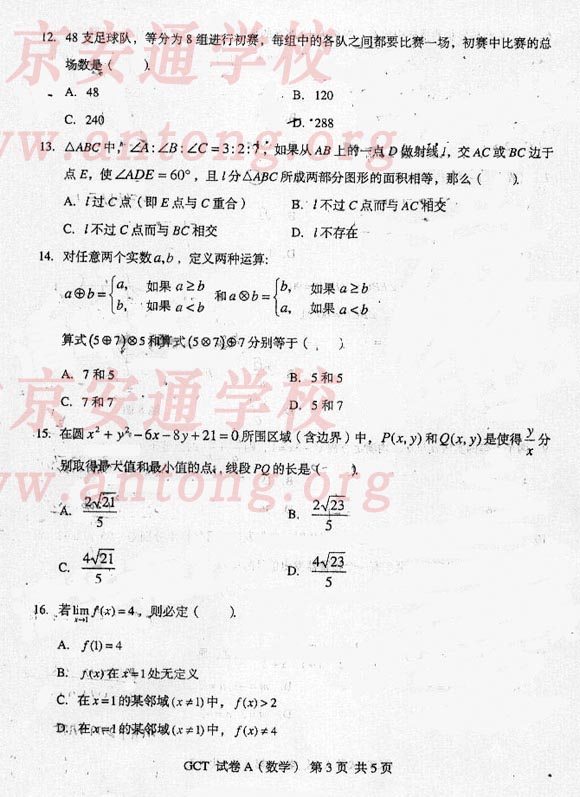 12. 48 支足球队，等分为 8 组进行初赛，每组中的各队之间都要比赛一场，初赛中比赛的总
场数是（　　）.
A. 48
B. 120
C. 240
D. 288
13. △ABC 中，∠A:∠B:∠C=3:2:7，如果从 AB 上的一点 D 做射线 l，交 AC 或 BC 边于
点 E，使 ∠ADE=60°，且 l 分△ABC 所成两部分图形的面积相等，那么（　　）.
A. l 过 C 点（即 E 点与 C 重合）
B. l 不过 C 点而与 AC 相交
C. l 不过 C 点而与 BC 相交
D. l 不存在
14. 对任意两个实数 a,b，定义两种运算：
a⊕b={a, 如果 a≥b
b, 如果 a<b
和 a⊗b={b, 如果 a≥b
a, 如果 a<b
算式 (5⊕7)⊗5 和算式 (5⊗7)⊕7 分别等于（　　）.
A. 7 和 5
B. 5 和 5
C. 7 和 7
D. 5 和 7
15. 在圆 x²+y²-6x-8y+21=0 所围区域（含边界）中，P(x,y) 和 Q(x,y) 是使得 y/x 分
别取得最大值和最小值的点，线段 PQ 的长是（　　）.
A. 2√21/5
B. 2√23/5
C. 4√21/5
D. 4√23/5
16. 若 lim x→1 f(x)=4，则必定（　　）.
A. f(1)=4
B. f(x) 在 x=1 处无定义
C. 在 x=1 的某邻域 (x≠1) 中，f(x)>2
D. 在 x=1 的某邻域 (x≠1) 中，f(x)≠4
GCT 试卷 A（数学） 第 3 页 共 5 页
京安通学校
www.antong.org
京安通学校
www.antong.org